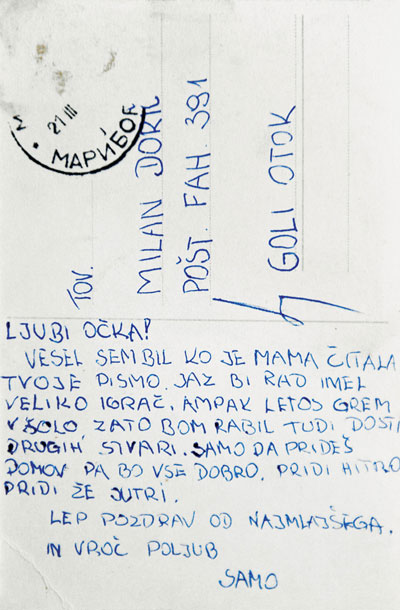 M
21 III
* МАРИБОР
TOV.
MILAN DORK
POŠT. FAH. 391
GOLI OTOK
LJUBI OČKA!
VESEL SEM BIL KO JE MAMA ČITALA
TVOJE PISMO. JAZ BI RAD IMEL
VELIKO IGRAČ, AMPAK LETOS GREM
V ŠOLO ZATO BOM RABIL TUDI DOSTI
DRUGIH STVARI. SAMO DA PRIDEŠ
DOMOV PA BO VSE DOBRO. PRIDI HITRO
PRIDI ŽE JUTRI.
LEP POZDRAV OD NAJMLAJŠEGA.
IN VROČ POLJUB
SAMO